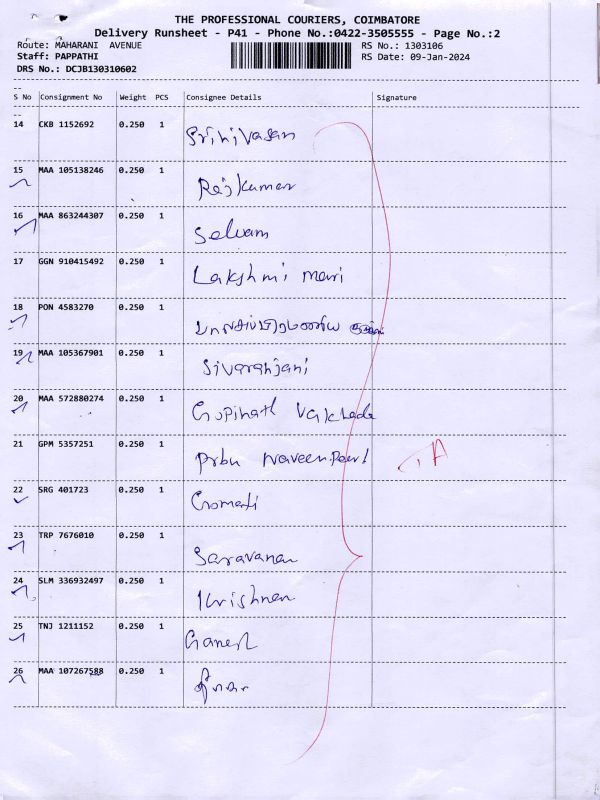 THE PROFESSIONAL COURIERS, COIMBATORE
Delivery Runsheet - P41 - Phone No.:0422-3505555 - Page No.:2
Route: MAHARANI AVENUE RS No.: 1303106
Staff: PAPPATHI RS Date: 09-Jan-2024
DRS No.: DCJB130310602
S No Consignment No Weight PCS Consignee Details Signature
14 CKB 1152692 0.250 1 Srinivasan
15 MAA 105138246 0.250 1 Rajkumar
16 MAA 863244307 0.250 1 Selvam
17 GGN 910415492 0.250 1 Lakshmi
18 PON 4583270 0.250 1
19 MAA 105367901 0.250 1 Sivaranjani
20 MAA 572880274 0.250 1 Gopinath
21 GPM 5357251 0.250 1 Naveen
22 SRG 401723 0.250 1 Gomati
23 TRP 7676010 0.250 1 Saravanan
24 SLM 336932497 0.250 1 Krishnan
25 TNJ 1211152 0.250 1 Ganesh
26 MAA 107267588 0.250 1